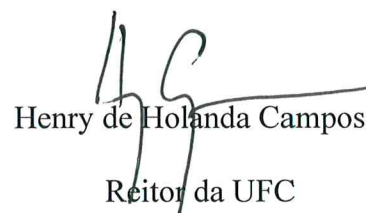 Henry de Holanda Campos
Reitor da UFC